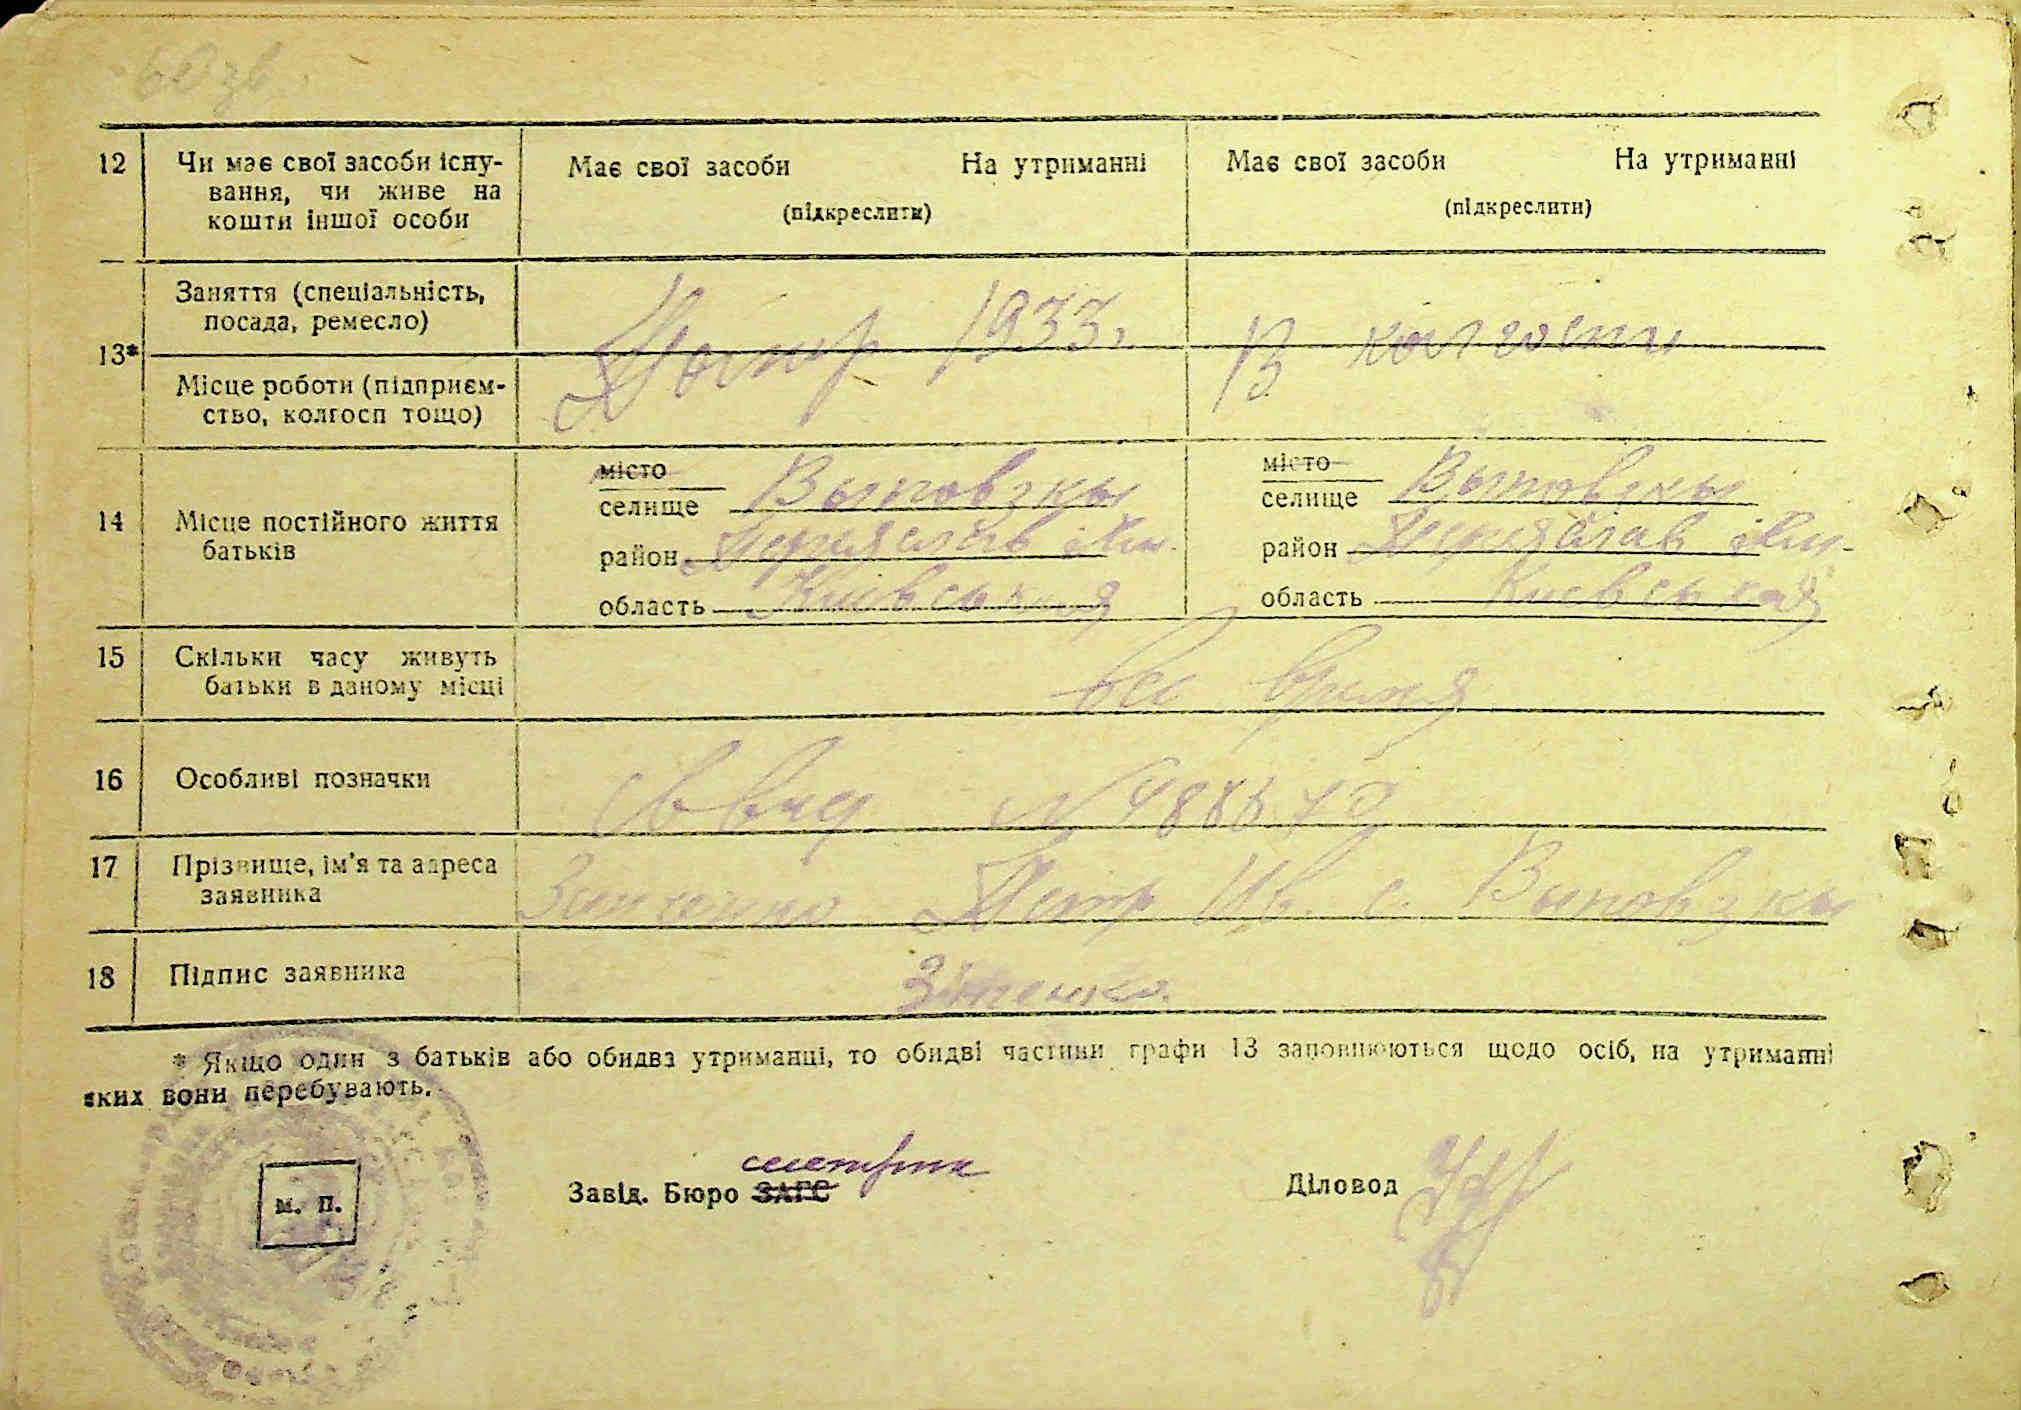 60 зв.
12 Чи має свої засоби існу-
вання, чи живе на
кошти іншої особи
Має свої засоби На утриманні
(підкреслити)
Має свої засоби На утриманні
(підкреслити)
13*
Заняття (спеціальність,
посада, ремесло)
Місце роботи (підприєм-
ство, колгосп тощо)
1933.
В
14 Місце постійного життя
батьків
місто
селище Выповзкы
район Переяслав Хм.
область Киівська
місто
селище Выповзкы
район Переяслав Хм.
область
15 Скільки часу живуть
батьки в даному місці
все время
16 Особливі позначки
№
17 Прізвище, ім'я та адреса
заявника
Петр Ив. с. Выповзкы
18 Підпис заявника
* Якщо один з батьків або обидва утриманці, то обидві частини графи 13 заповнюються щодо осіб, на утриманні
яких вони перебувають.
М. П.
Завід. Бюро ЗАГС
Діловод